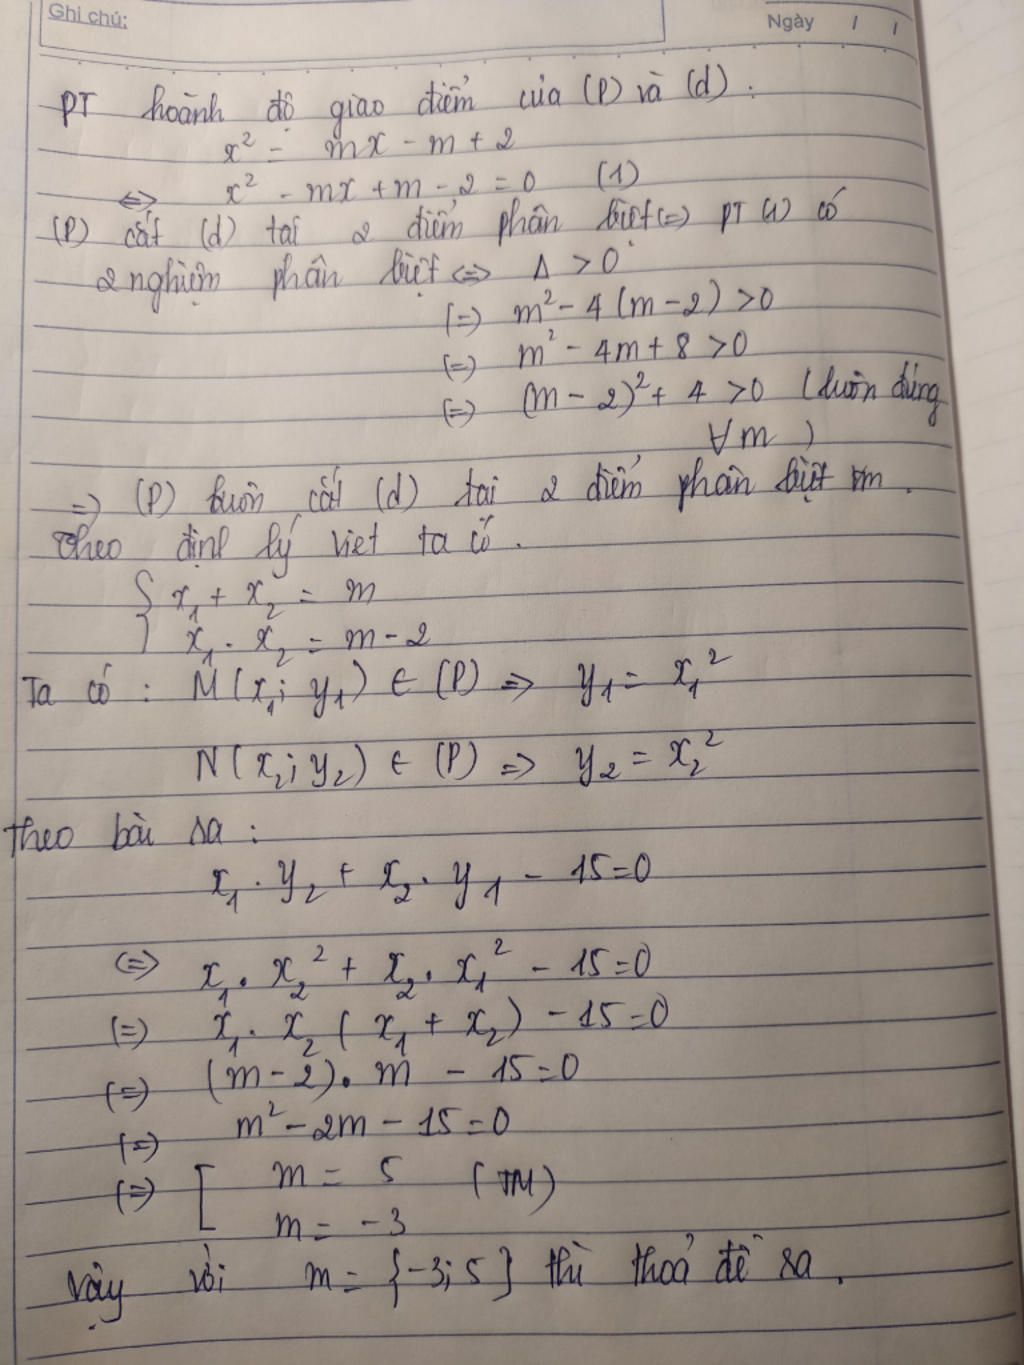 Ghi chú:
Ngày / /
PT hoành độ giao điểm của (P) và (d) :
x² = mx - m + 2
<=> x² - mx + m - 2 = 0 (1)
(P) cắt (d) tại 2 điểm phân biệt (=) PT (1) có
2 nghiệm phân biệt <=> Δ > 0
(=) m² - 4(m - 2) > 0
(=) m² - 4m + 8 > 0
(=) (m - 2)² + 4 > 0 (luôn đúng
∀m )
=> (P) luôn cắt (d) tại 2 điểm phân biệt ∀m .
Theo định lý viet ta có .
{ x₁ + x₂ = m
x₁ . x₂ = m - 2
Ta có : M(x₁; y₁) ∈ (P) => y₁ = x₁²
N(x₂; y₂) ∈ (P) => y₂ = x₂²
Theo bài ra :
x₁ . y₂ + x₂ . y₁ - 15 = 0
<=> x₁ . x₂² + x₂ . x₁² - 15 = 0
(=) x₁ . x₂ ( x₁ + x₂ ) - 15 = 0
(=) (m - 2) . m - 15 = 0
(=) m² - 2m - 15 = 0
(=) [ m = 5 (TM)
m = -3
Vậy với m = {-3; 5} thì thoả đề ra .